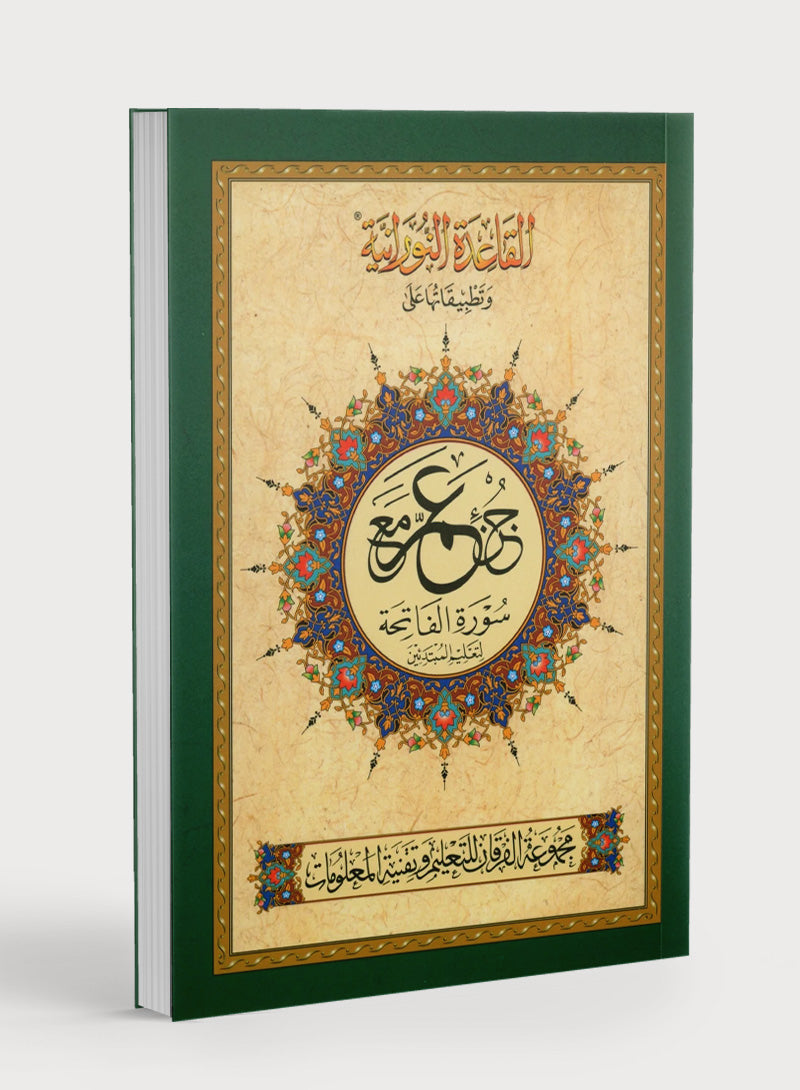 القَاعِدَة النُّورَانِيَّة ®
وَتَطْبِيقَاتُهَا عَلَى
جُزْء عَمَّ مَعَ
سُورَة الفَاتِحَة
لِتَعْلِيم المُبْتَدِئِين
مَجْمُوعَة الفُرْقَان لِلتَّعْلِيم وَتِقْنِيَة المَعْلُومَات